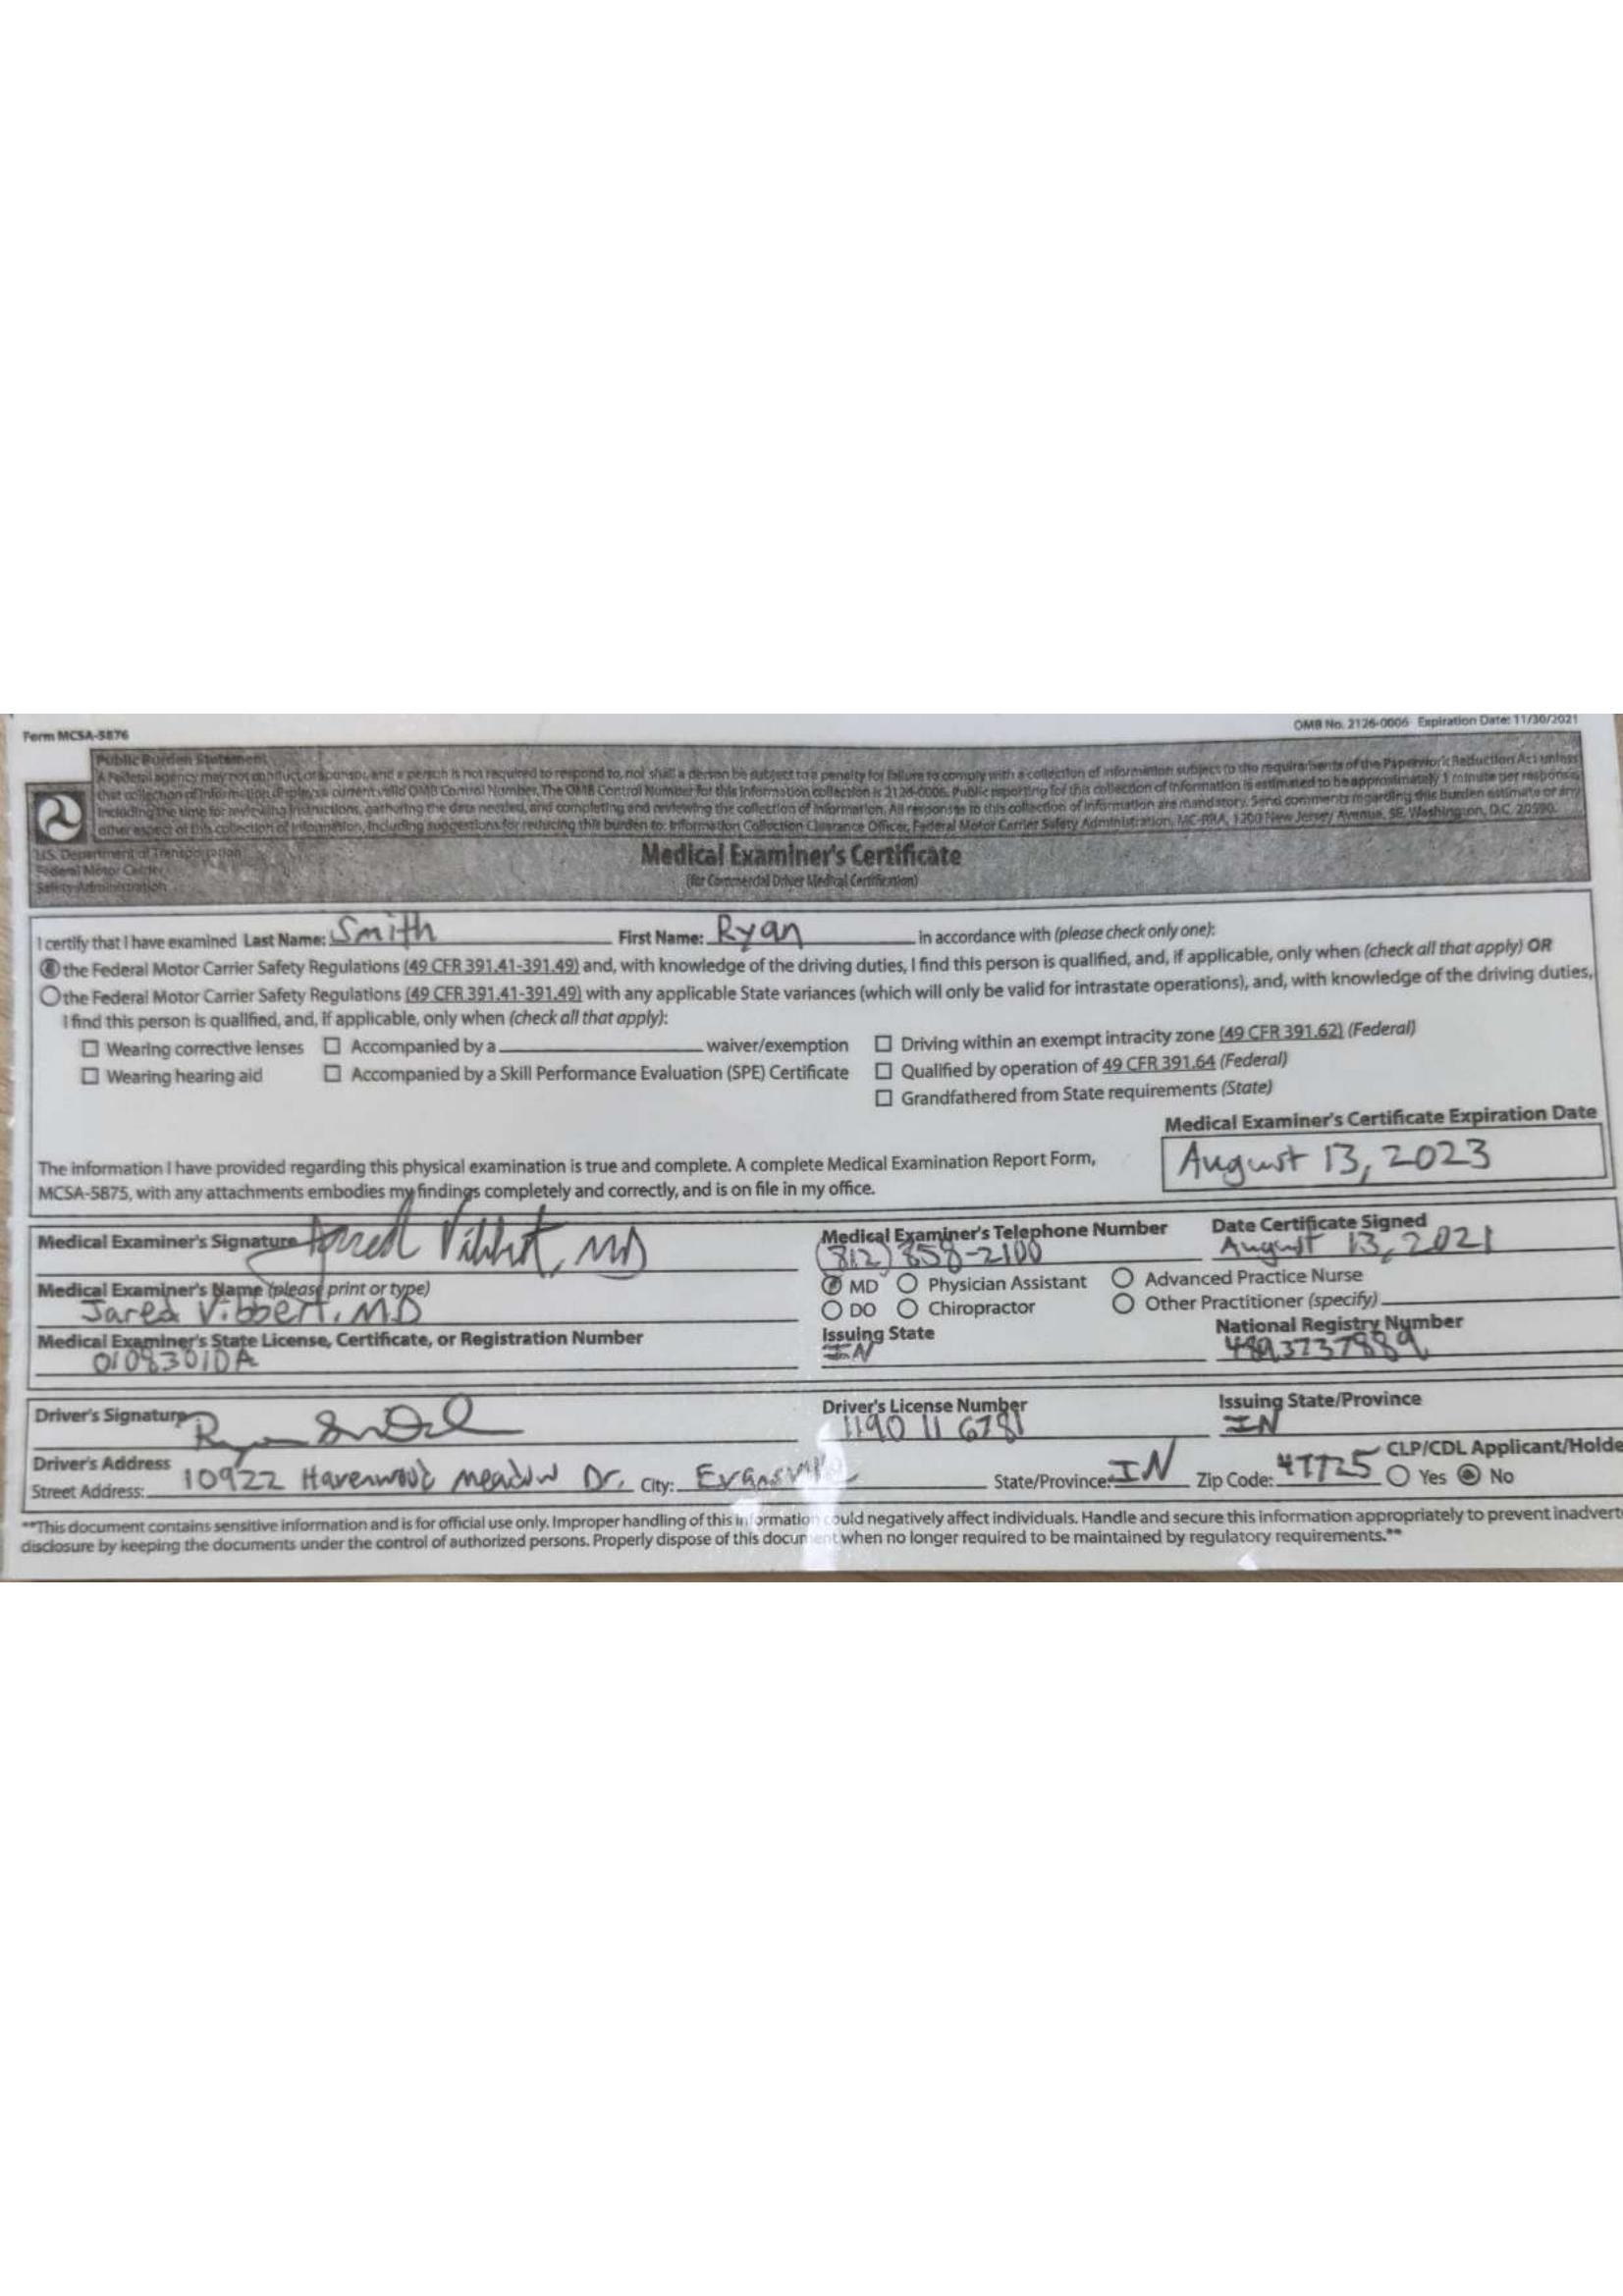 Form MCSA-5876
OMB No. 2126-0006 Expiration Date: 11/30/2021
Public Burden Statement
A Federal agency may not conduct or sponsor, and a person is not required to respond to, nor shall a person be subject to a penalty for failure to comply with a collection of information subject to the requirements of the Paperwork Reduction Act unless
that collection of information displays a current valid OMB Control Number. The OMB Control Number for this information collection is 2126-0006. Public reporting for this collection of information is estimated to be approximately 1 minute per response,
including the time for reviewing instructions, gathering the data needed, and completing and reviewing the collection of information. All responses to this collection of information are mandatory. Send comments regarding this burden estimate or any
other aspect of this collection of information, including suggestions for reducing this burden to: Information Collection Clearance Officer, Federal Motor Carrier Safety Administration, MC-RRA, 1200 New Jersey Avenue, SE, Washington, D.C. 20590.
U.S. Department of Transportation
Federal Motor Carrier
Safety Administration
Medical Examiner's Certificate
(for Commercial Driver Medical Certification)
I certify that I have examined Last Name: Smith First Name: Ryan in accordance with (please check only one):
the Federal Motor Carrier Safety Regulations (49 CFR 391.41-391.49) and, with knowledge of the driving duties, I find this person is qualified, and, if applicable, only when (check all that apply) OR
the Federal Motor Carrier Safety Regulations (49 CFR 391.41-391.49) with any applicable State variances (which will only be valid for intrastate operations), and, with knowledge of the driving duties,
I find this person is qualified, and, if applicable, only when (check all that apply):
Wearing corrective lenses Accompanied by a waiver/exemption Driving within an exempt intracity zone (49 CFR 391.62) (Federal)
Wearing hearing aid Accompanied by a Skill Performance Evaluation (SPE) Certificate Qualified by operation of 49 CFR 391.64 (Federal)
Grandfathered from State requirements (State)
Medical Examiner's Certificate Expiration Date
August 13, 2023
The information I have provided regarding this physical examination is true and complete. A complete Medical Examination Report Form,
MCSA-5875, with any attachments embodies my findings completely and correctly, and is on file in my office.
Medical Examiner's Signature Jared Vibbert, MD
Medical Examiner's Telephone Number
(812) 858-2100
Date Certificate Signed
August 13, 2021
Medical Examiner's Name (please print or type)
Jared Vibbert, MD
MD Physician Assistant Advanced Practice Nurse
DO Chiropractor Other Practitioner (specify)
Medical Examiner's State License, Certificate, or Registration Number
01083010A
Issuing State
IN
National Registry Number
4893737889
Driver's Signature Ryan Smith
Driver's License Number
1190 11 6781
Issuing State/Province
IN
Driver's Address
Street Address: 10922 Havenwood Meadow Dr. City: Evansville State/Province: IN Zip Code: 47725
CLP/CDL Applicant/Holde
Yes No
**This document contains sensitive information and is for official use only. Improper handling of this information could negatively affect individuals. Handle and secure this information appropriately to prevent inadvert
disclosure by keeping the documents under the control of authorized persons. Properly dispose of this document when no longer required to be maintained by regulatory requirements.**